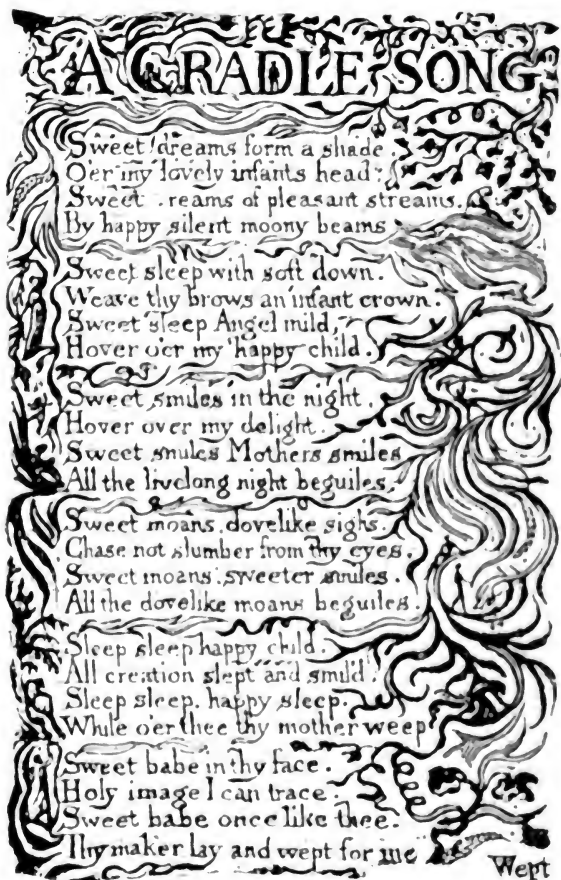 A CRADLE SONG
Sweet dreams form a shade.
O'er my lovely infants head.
Sweet reams of pleasant streams.
By happy silent moony beams
Sweet sleep with soft down.
Weave thy brows an infant crown.
Sweet sleep Angel mild,
Hover o'er my happy child.
Sweet smiles in the night.
Hover over my delight.
Sweet smiles Mothers smiles
All the livelong night beguiles.
Sweet moans, dovelike sighs.
Chase not slumber from thy eyes.
Sweet moans, sweeter smiles.
All the dovelike moans beguiles.
Sleep sleep happy child.
All creation slept and smil'd.
Sleep sleep, happy sleep.
While o'er thee thy mother weep
Sweet babe in thy face.
Holy image I can trace.
Sweet babe once like thee.
Thy maker lay and wept for me
Wept